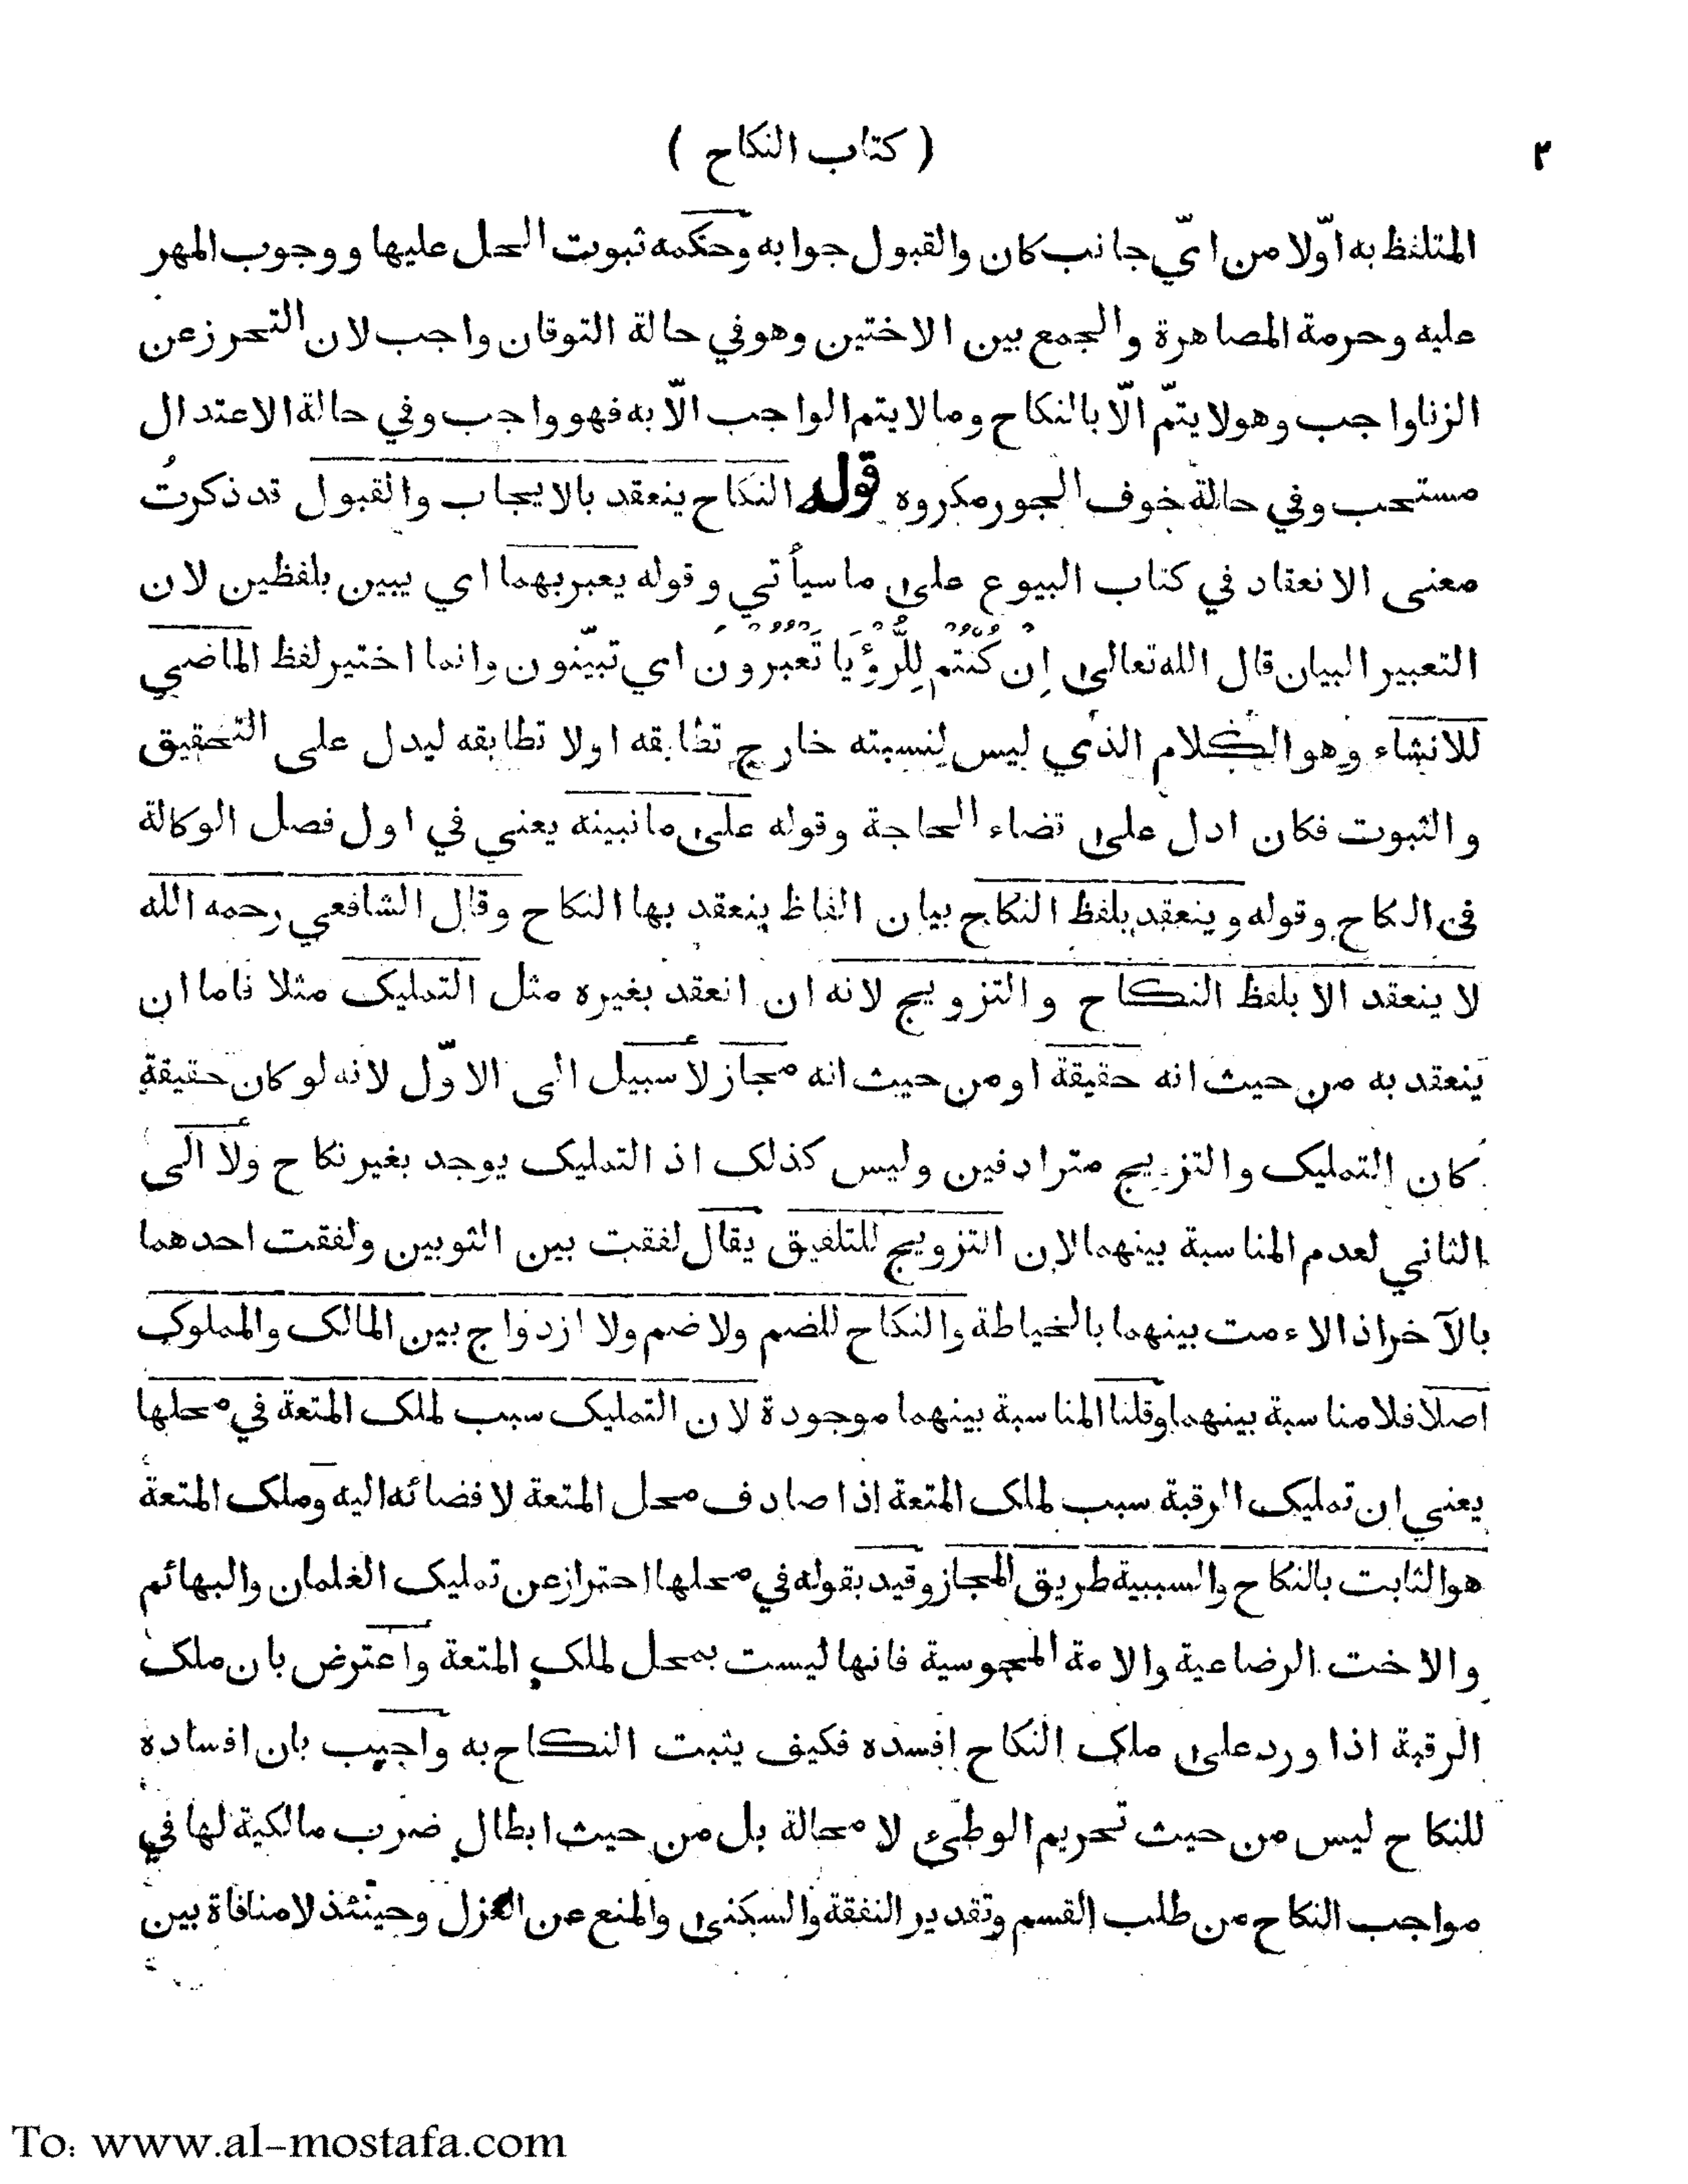 ( كتاب النكاح ) ٢
المتلفظ به اوّلا من ايّ جانب كان والقبول جوابه وحكمه ثبوت الحل عليها ووجوب المهر
عليه وحرمة المصاهرة والجمع بين الاختين وهو في حالة التوقان واجب لان التحرز عن
الزنا واجب وهو لا يتمّ الّا بالنكاح وما لا يتم الواجب الّا به فهو واجب وفي حالة الاعتدال
مستحب وفي حالة خوف الجور مكروه قوله النكاح ينعقد بالايجاب والقبول قد ذكرتُ
معنى الانعقاد في كتاب البيوع على ما سيأتي وقوله يعبر بهما اي يبين بلفظين لان
التعبير البيان قال الله تعالى اِنْ كُنْتُمْ لِلرُّؤْيَا تَعْبُرُوْنَ اي تبيّنون وانما اختير لفظ الماضي
للانشاء وهو الكلام الذي ليس لنسبته خارج تطابقه اولا تطابقه ليدل على التحقيق
والثبوت فكان ادل على قضاء الحاجة وقوله على ما نبينه يعني في اول فصل الوكالة
في النكاح وقوله وينعقد بلفظ النكاح بيان الفاظ ينعقد بها النكاح وقال الشافعي رحمه الله
لا ينعقد الا بلفظ النكاح والتزويج لانه ان انعقد بغيره مثل التمليك مثلا فاما ان
ينعقد به من حيث انه حقيقة او من حيث انه مجاز لا سبيل الى الاوّل لانه لو كان حقيقة
كان التمليك والتزويج مترادفين وليس كذلك اذ التمليك يوجد بغير نكاح ولا الى
الثاني لعدم المناسبة بينهما لان التزويج للتلفيق يقال لفقت بين الثوبين ولفقت احدهما
بالآخر اذا لاءمت بينهما بالخياطة والنكاح للضم ولا ضم ولا ازدواج بين المالك والمملوك
اصلا فلا مناسبة بينهما وقلنا المناسبة بينهما موجودة لان التمليك سبب لملك المتعة في محلها
يعني ان تمليك الرقبة سبب لملك المتعة اذا صادف محل المتعة لافضائه اليه وملك المتعة
هو الثابت بالنكاح والسببية طريق المجاز وقيد بقوله في محلها احتراز عن تمليك الغلمان والبهائم
والاخت الرضاعية والامة المجوسية فانها ليست بمحل لملك المتعة واعترض بان ملك
الرقبة اذا ورد على ملك النكاح افسده فكيف يثبت النكاح به واجيب بان افساده
للنكاح ليس من حيث تحريم الوطئ لا محالة بل من حيث ابطال ضرب مالكية لها في
مواجب النكاح من طلب القسم وتقدير النفقة والسكنى والمنع عن العزل وحينئذ لا منافاة بين
To: www.al-mostafa.com